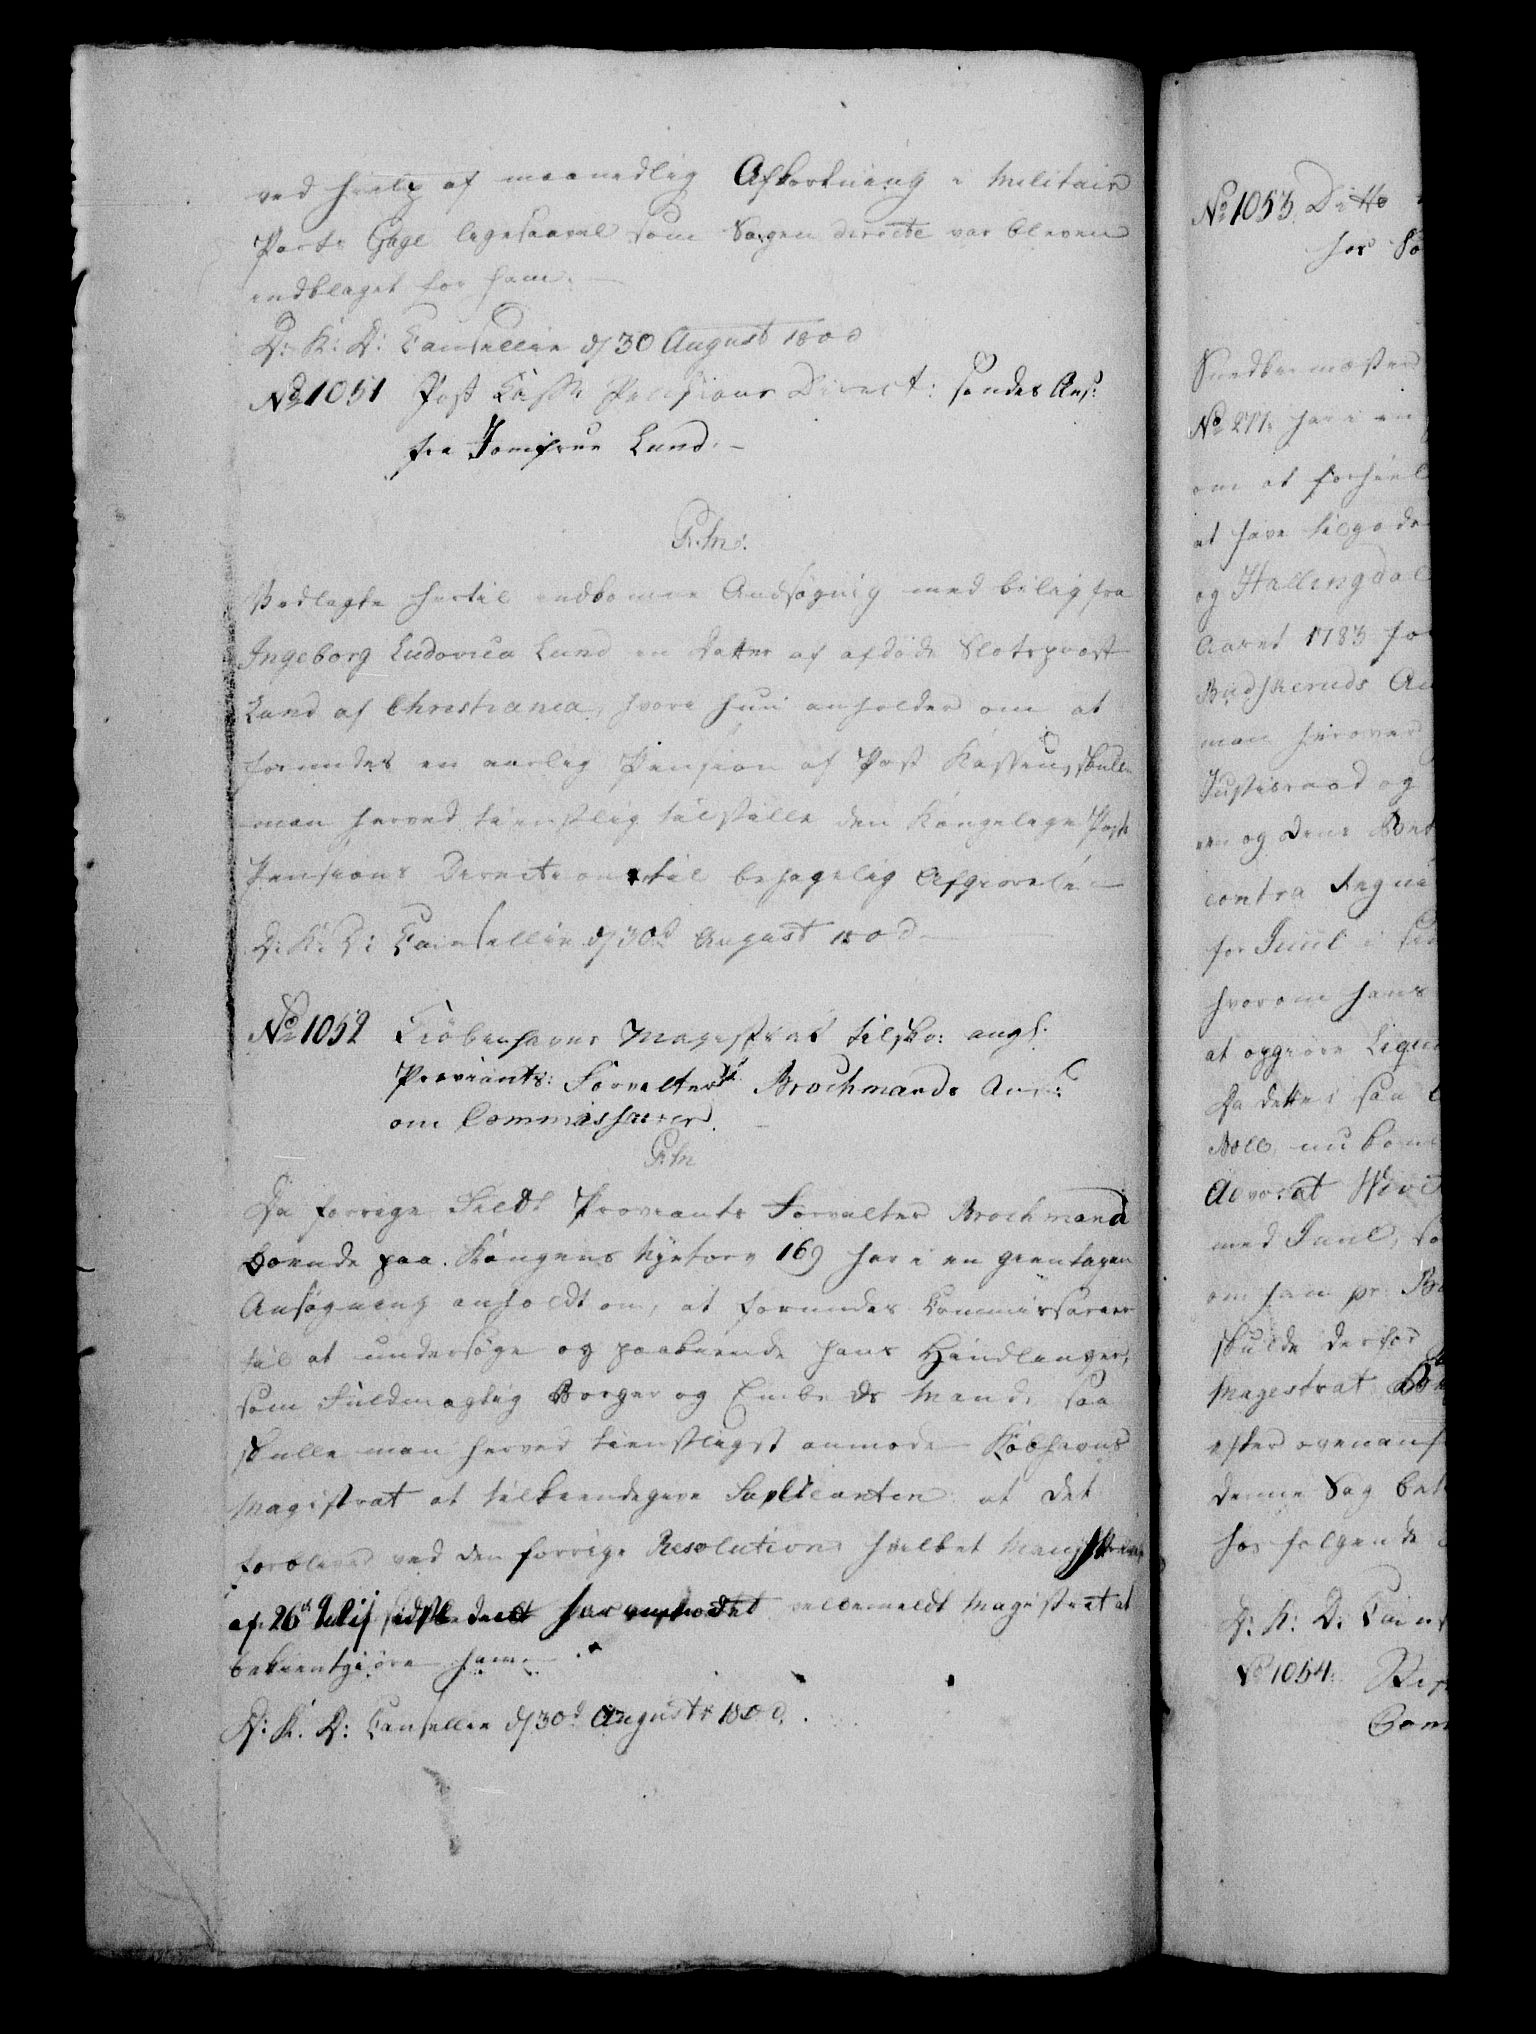 ved hielp af maanedlig Afkortning i Militair
Parts Gage ligesaavel som Sagen directe var bleven
indklaget for ham.
D: K: D: Cancellie d 30 August 1800
No 1051 Post Casse Pensions Direct: sendes Ans:
fra Jomfrue Lund. –
P. M:
Vedlagte hertil indkomne Ansøgnig med bilag fra
Ingeborg Ludovica Lund en Datter af afdøde Slotspræst
Lund af Christiania, hvori hun anholder om at
forundes en aarlig Pension af Post Kassen, skulle
man herved tienstlig tilstille den Kongelige Post
Pensions Direction til behagelig Afgiørelse –
D: K: D: Cancellie d 30d August 1800
No 1052 Kiøbenhavns Magistrat tilskr: angl.
Proviants: Forvalter Brochmands Ans:
om Commissairer. –
P. M
Da forrige Feldt Proviants Forvalter Brochmand
boende paa Kongens Nyetorv 169 har i en gientagen
Ansøgning anholdt om, at forundes Commissairer
til at undersøge og paakiende hans Handlinger,
som Fuldmægtig Borger og Embeds Mand, saa
skulle man herved tienstligst anmode Kiøbhavns
Magistrat at tilkiendegive Suplicanten at det
forbliver ved den forrige Resolution hvilket
af 26d Julij sidst har anmodet velbemeldt Magistrat at
bekientgiøre ham. –
D: K: D: Cancellie d 30d Augusti 1800.
No 1053. Ditto
hos
Snedkermester
No 277. har i en
om at forhiel
at have tilgode
og Hallingdal
Aaret 1783 for
Budskeruds
man herover
Justisraad og
en og Dens
contra
for Juul i
hvorom hans
at opgiøre
Da dette saa
Noll, nu
Advocat
med Juul, 
om ham pr.
skulde derfor
Magistrat
efter ovenanf
denne Sag
hos følgende
D: K: D:
No 1054.
Com